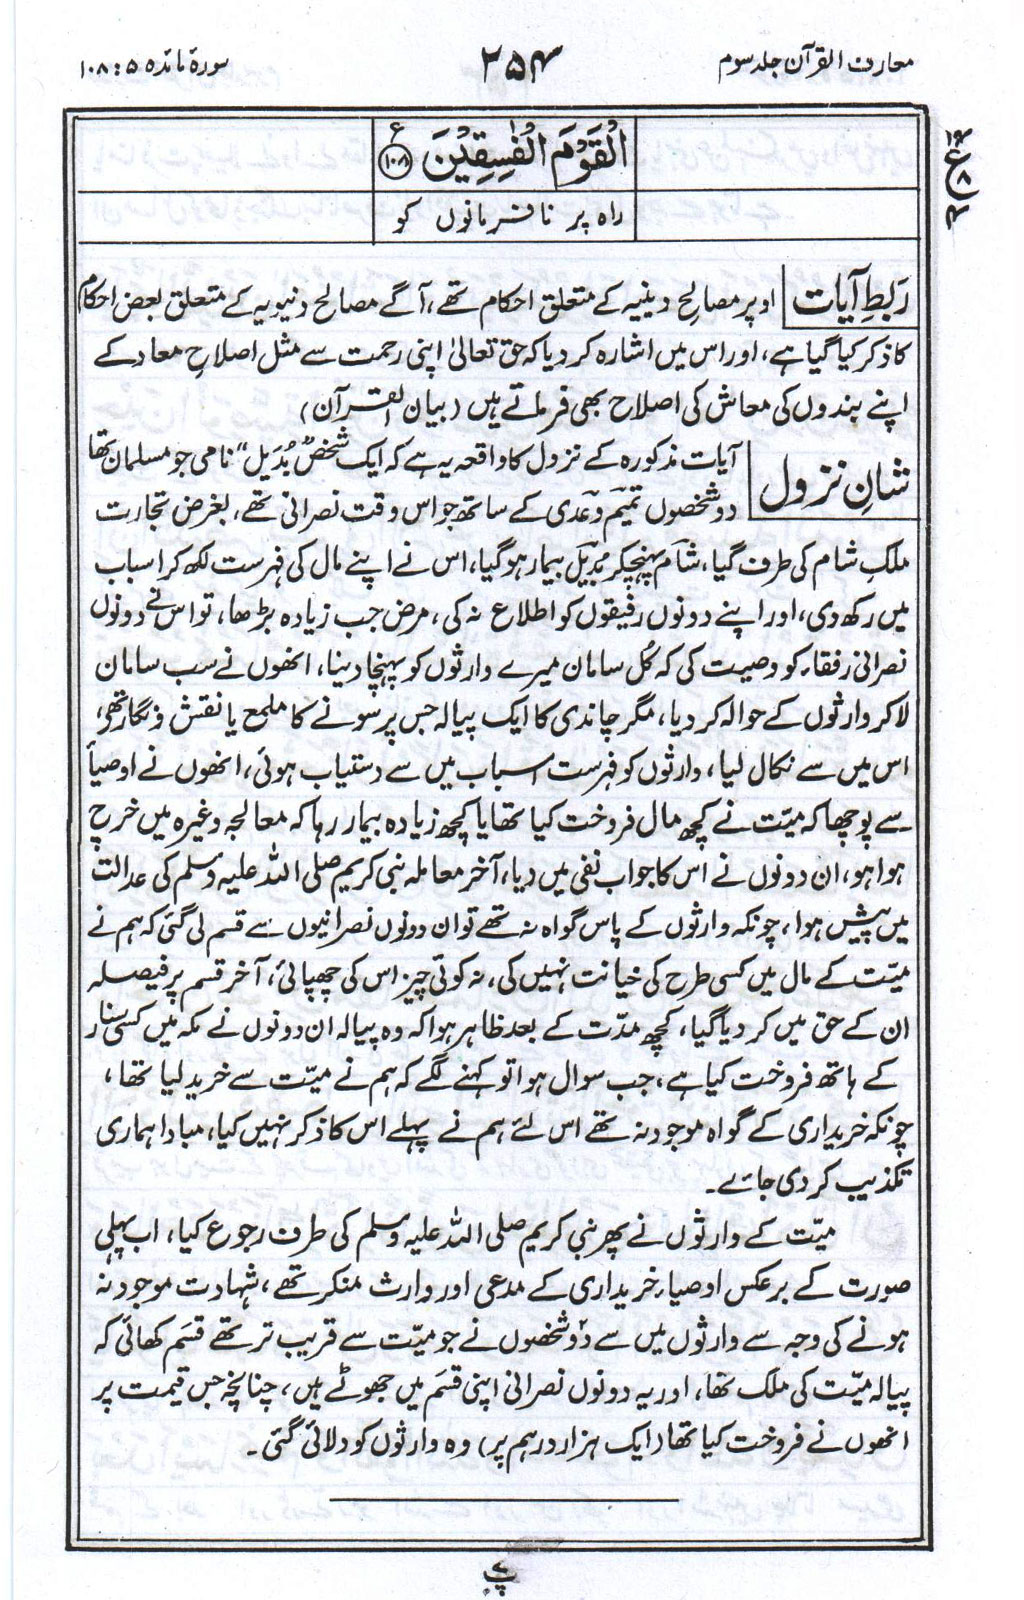 معارف القرآن جلد سوم
۲۵۴
سورۂ مائدہ ۵ : ۱۰۸
الْقَوْمَ الْفٰسِقِيْنَ ﴿۱۰۸﴾ ع
راہ پر نافرمانوں کو
ربطِ آیات
اوپر مصالحِ دینیہ کے متعلق احکام تھے، آگے مصالح دنیویہ کے متعلق بعض احکام
کا ذکر کیا گیا ہے، اور اس میں اشارہ کر دیا کہ حق تعالیٰ اپنی رحمت سے مثل اصلاحِ معاد کے
اپنے بندوں کی معاش کی اصلاح بھی فرماتے ہیں (بیان القرآن)
شانِ نزول
آیات مذکورہ کے نزول کا واقعہ یہ ہے کہ ایک شخص بُدَیل" نامی جو مسلمان تھا
دو شخصوں تمیم وعدی کے ساتھ جو اس وقت نصرانی تھے، بغرض تجارت
ملکِ شام کی طرف گیا، شام پہنچکر بُدیل بیمار ہوگیا، اس نے اپنے مال کی فہرست لکھ کر اسباب
میں رکھ دی، اور اپنے دونوں رفیقوں کو اطلاع نہ کی، مرض جب زیادہ بڑھا، تو اس نے دونوں
نصرانی رفقاء کو وصیت کی کہ کُل سامان میرے وارثوں کو پہنچا دینا، انھوں نے سب سامان
لا کر وارثوں کے حوالہ کر دیا، مگر چاندی کا ایک پیالہ جس پر سونے کا ملمع یا نقش و نگار تھے،
اس میں سے نکال لیا، وارثوں کو فہرست اسباب میں سے دستیاب ہوئی، انھوں نے اوصیاء
سے پوچھا کہ میّت نے کچھ مال فروخت کیا تھا یا کچھ زیادہ بیمار رہا کہ معالجہ وغیرہ میں خرچ
ہوا ہو، ان دونوں نے اس کا جواب نفی میں دیا، آخر معاملہ نبی کریم صلی اللہ علیہ وسلم کی عدالت
میں پیش ہوا، چونکہ وارثوں کے پاس گواہ نہ تھے تو ان دونوں نصرانیوں سے قسم لی گئی کہ ہم نے
میّت کے مال میں کسی طرح کی خیانت نہیں کی، نہ کوئی چیز اس کی چھپائی، آخر قسم پر فیصلہ
ان کے حق میں کر دیا گیا، کچھ مدّت کے بعد ظاہر ہوا کہ وہ پیالہ ان دونوں نے مکہ میں کسی سنار
کے ہاتھ فروخت کیا ہے، جب سوال ہوا تو کہنے لگے کہ ہم نے میّت سے خرید لیا تھا،
چونکہ خریداری کے گواہ موجود نہ تھے اس لئے ہم نے پہلے اس کا ذکر نہیں کیا، مبادا ہماری
تکذیب کر دی جائے۔
میّت کے وارثوں نے پھر نبی کریم صلی اللہ علیہ وسلم کی طرف رجوع کیا، اب پہلی
صورت کے برعکس اوصیاء خریداری کے مدعی اور وارث منکر تھے، شہادت موجود نہ
ہونے کی وجہ سے وارثوں میں سے دو شخصوں نے جو میّت سے قریب تر تھے قسم کھائی کہ
پیالہ میّت کی ملک تھا، اور یہ دونوں نصرانی اپنی قسم میں جھوٹے ہیں، چنانچہ جس قیمت پر
انھوں نے فروخت کیا تھا (ایک ہزار درہم پر) وہ وارثوں کو دلائی گئی۔